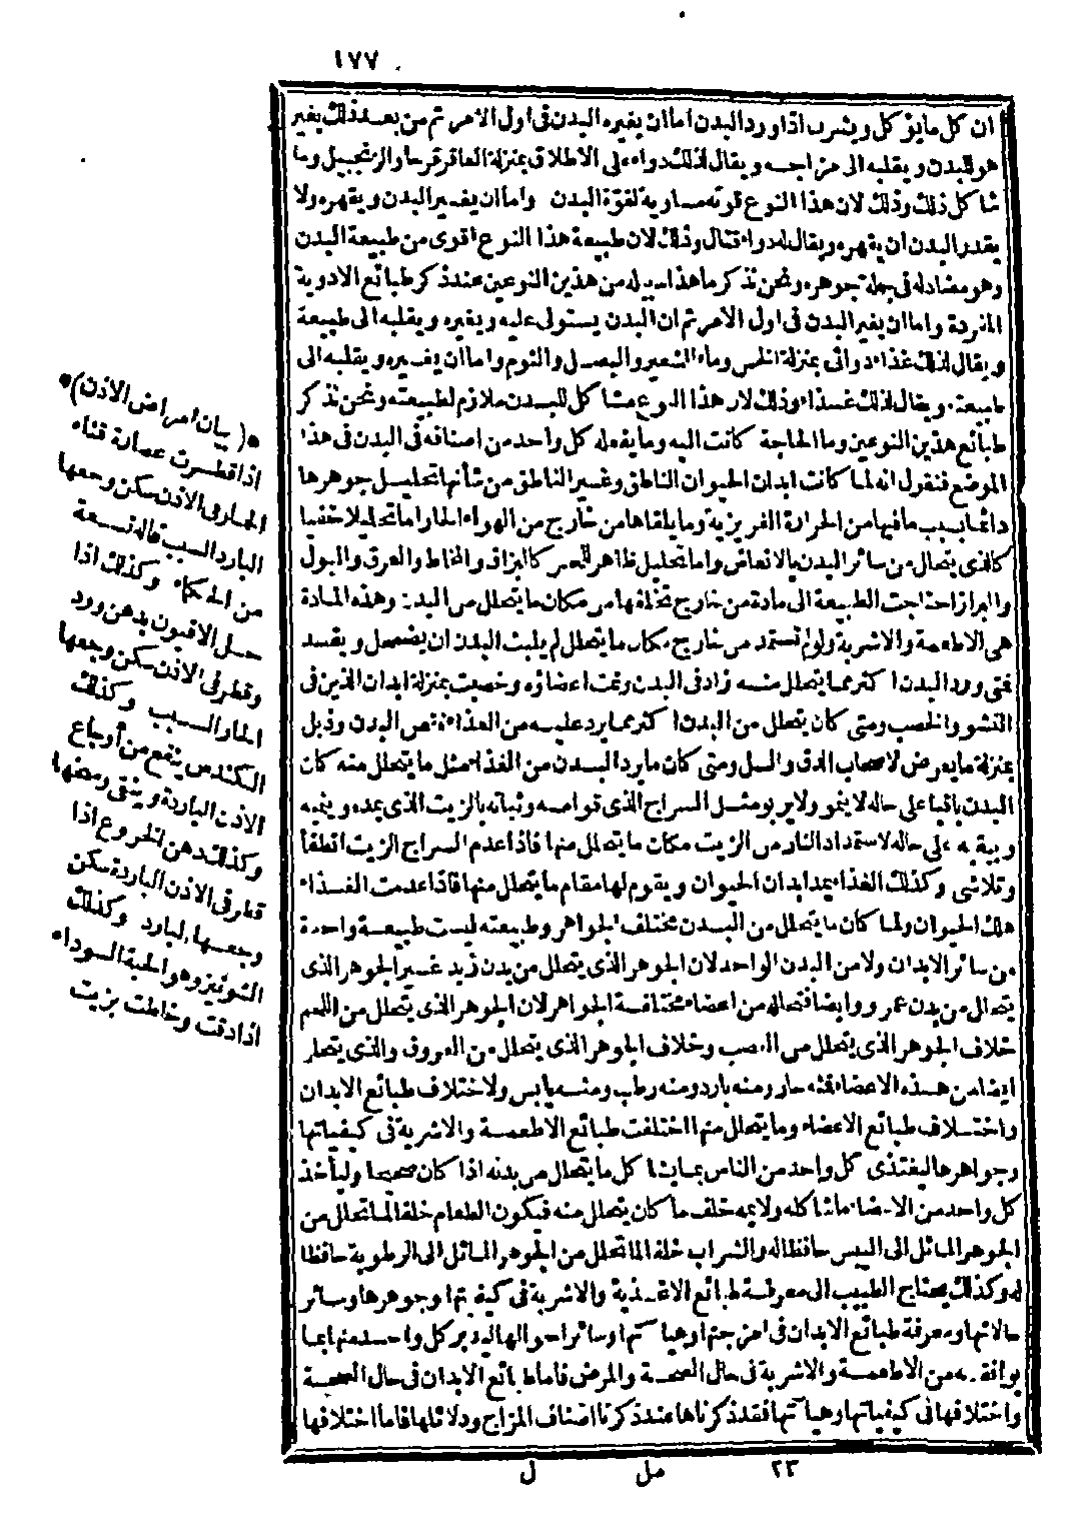 ١٧٧
ان كل ما يؤكل ويشرب اذا ورد البدن اما ان يغيره البدن فى اول الامر ثم من بعد ذلك يغير
هو البدن ويقلبه الى مزاجه ويقال لذلك دواء على الاطلاق بمنزلة العاقرقرحا والزنجبيل وما
شاكل ذلك وذلك لان هذا النوع قوته مساوية لقوة البدن واما ان يغير البدن ويقهره ولا
يقدر البدن ان يقهره ويقال له دواء قتال وذلك لان طبيعة هذا النوع اقوى من طبيعة البدن
وهو مضاد له فى جملة جوهره ونحن نذكر ما هذا سبيله من هذين النوعين عند ذكر طبائع الادوية
المفردة واما ان يغير البدن فى اول الامر ثم ان البدن يستولى عليه ويغيره ويقلبه الى طبيعة
ويقال لذلك غذاء دوائى بمنزلة الخس وماء الشعير والبصل والثوم واما ان يغيره ويقلبه الى
طبيعته ويقال لذلك غذاء وذلك لان هذا النوع مشاكل للبدن ملازم لطبيعته ونحن نذكر
طبائع هذين النوعين وما الحاجة كانت اليه وما يفعله كل واحد من اصنافه فى البدن فى هذا
الموضع فنقول انه لما كانت ابدان الحيوان الناطق وغير الناطق من شأنها تحليل جوهرها
دائما بسبب ما فيها من الحرارة الغريزية وما يلقاها من خارج من الهواء الحار اما تحليلا خفيا
كالذى يتحلل من سائر البدن بالانفاش واما تحليل ظاهر للبصر كالبزاق والمخاط والعرق والبول
والبراز احتاجت الطبيعة الى مادة من خارج تخلفها من مكان ما يتحلل من البدن وهذه المادة
هى الاطعمة والاشربة ولولم تستمد من خارج مكان ما يتحلل لم يلبث البدن ان يضمحل ويفسد
فتى ورد البدن اكثر مما يتحلل منه زاد فى البدن ونمت اعضاؤه وخصبت بمنزلة ابدان الذين فى
النشو والخصب ومتى كان يتحلل من البدن اكثر مما يرد عليه من الغذاء نقص البدن وذبل
بمنزلة ما يعرض لاصحاب الدق والسل ومتى كان ما يرد البدن من الغذاء مثل ما يتحلل منه كان
البدن باقيا على حاله لا ينمو ولا يربو مثل السراج الذى قوامه وثباته بالزيت الذى يمده وينميه
ويبقيه على حاله لاستمداد النار من الزيت مكان ما يتحلل منها فاذا عدم السراج الزيت انطفأ
وتلاشى وكذلك الغذاء يمد ابدان الحيوان ويقوم لها مقام ما يتحلل منها فاذا عدمت الغذاء
هلك الحيوان ولما كان ما يتحلل من البدن مختلف الجواهر وطبيعته ليست طبيعة واحدة
من سائر الابدان ولا من البدن الواحد لان الجوهر الذى يتحلل من بدن زيد غير الجوهر الذى
يتحلل من بدن عمرو وايضا فتحلله من اعضاء مختلفة الجواهر لان الجوهر الذى يتحلل من اللحم
خلاف الجوهر الذى يتحلل من العصب وخلاف الجوهر الذى يتحلل من العروق والذى يتحلل
ايضا من هذه الاعضاء فنه حار ومنه بارد ومنه رطب ومنه يابس ولاختلاف طبائع الابدان
واختلاف طبائع الاعضاء وما يتحلل منها اختلفت طبائع الاطعمة والاشربة فى كيفياتها
وجواهرها ليغتذى كل واحد من الناس بما يشاكل ما يتحلل من بدنه اذا كان صحيحا وليأخذ
كل واحد من الاعضاء ما شاكله ولايمه خلف ما كان يتحلل منه فيكون الطعام خلفا لما تحلل من
الجوهر المائل الى اليبس حافظا له والشراب خلفا لما تحلل من الجوهر المائل الى الرطوبة حافظا
له وكذلك يحتاج الطبيب الى معرفة طبائع الاغذية والاشربة فى كيفيتها وجوهرها وسائر
حالاتها ومعرفة طبائع الابدان فى امزجتها وهياكتها وسائر احوالها ليدبر كل واحد منها بما
يوافقه من الاطعمة والاشربة فى حال الصحة والمرض فاما طبائع الابدان فى حال الصحة
واختلافها فى كيفياتها وهياكتها فقد ذكرناها عند ذكرنا اصناف المزاج ودلائلها فاما اختلافها
٢٣ مل ل
*(بيان امراض الاذن)*
اذا قطرت عصارة قثاء
الحمار فى الاذن سكن وجعها
البارد السبب قاله تسعة
من الحكماء وكذلك اذا
حل الافيون بدهن ورد
وقطر فى الاذن سكن وجعها
الحار السبب وكذلك
الكندس ينفع من أوجاع
الاذن الباردة وينقى وسخها
وكذلك دهن الخروع اذا
قطر فى الاذن الباردة سكن
وجعها البارد وكذلك
الشونيز وهو الحبة السوداء
اذا دقت وخلطت بزيت